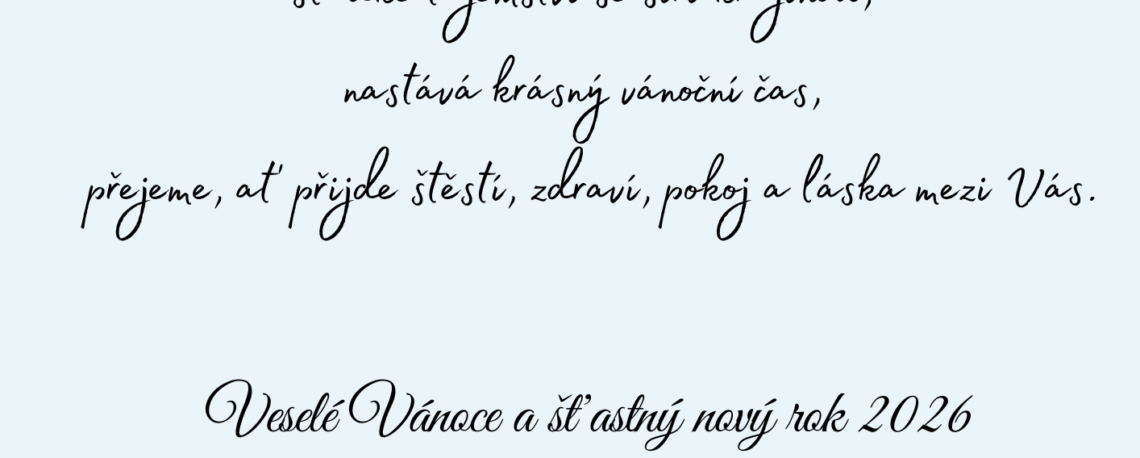 nastává krásný vánoční čas,
přejeme, ať přijde štěstí, zdraví, pokoj a láska mezi Vás.
Veselé Vánoce a šťastný nový rok 2026